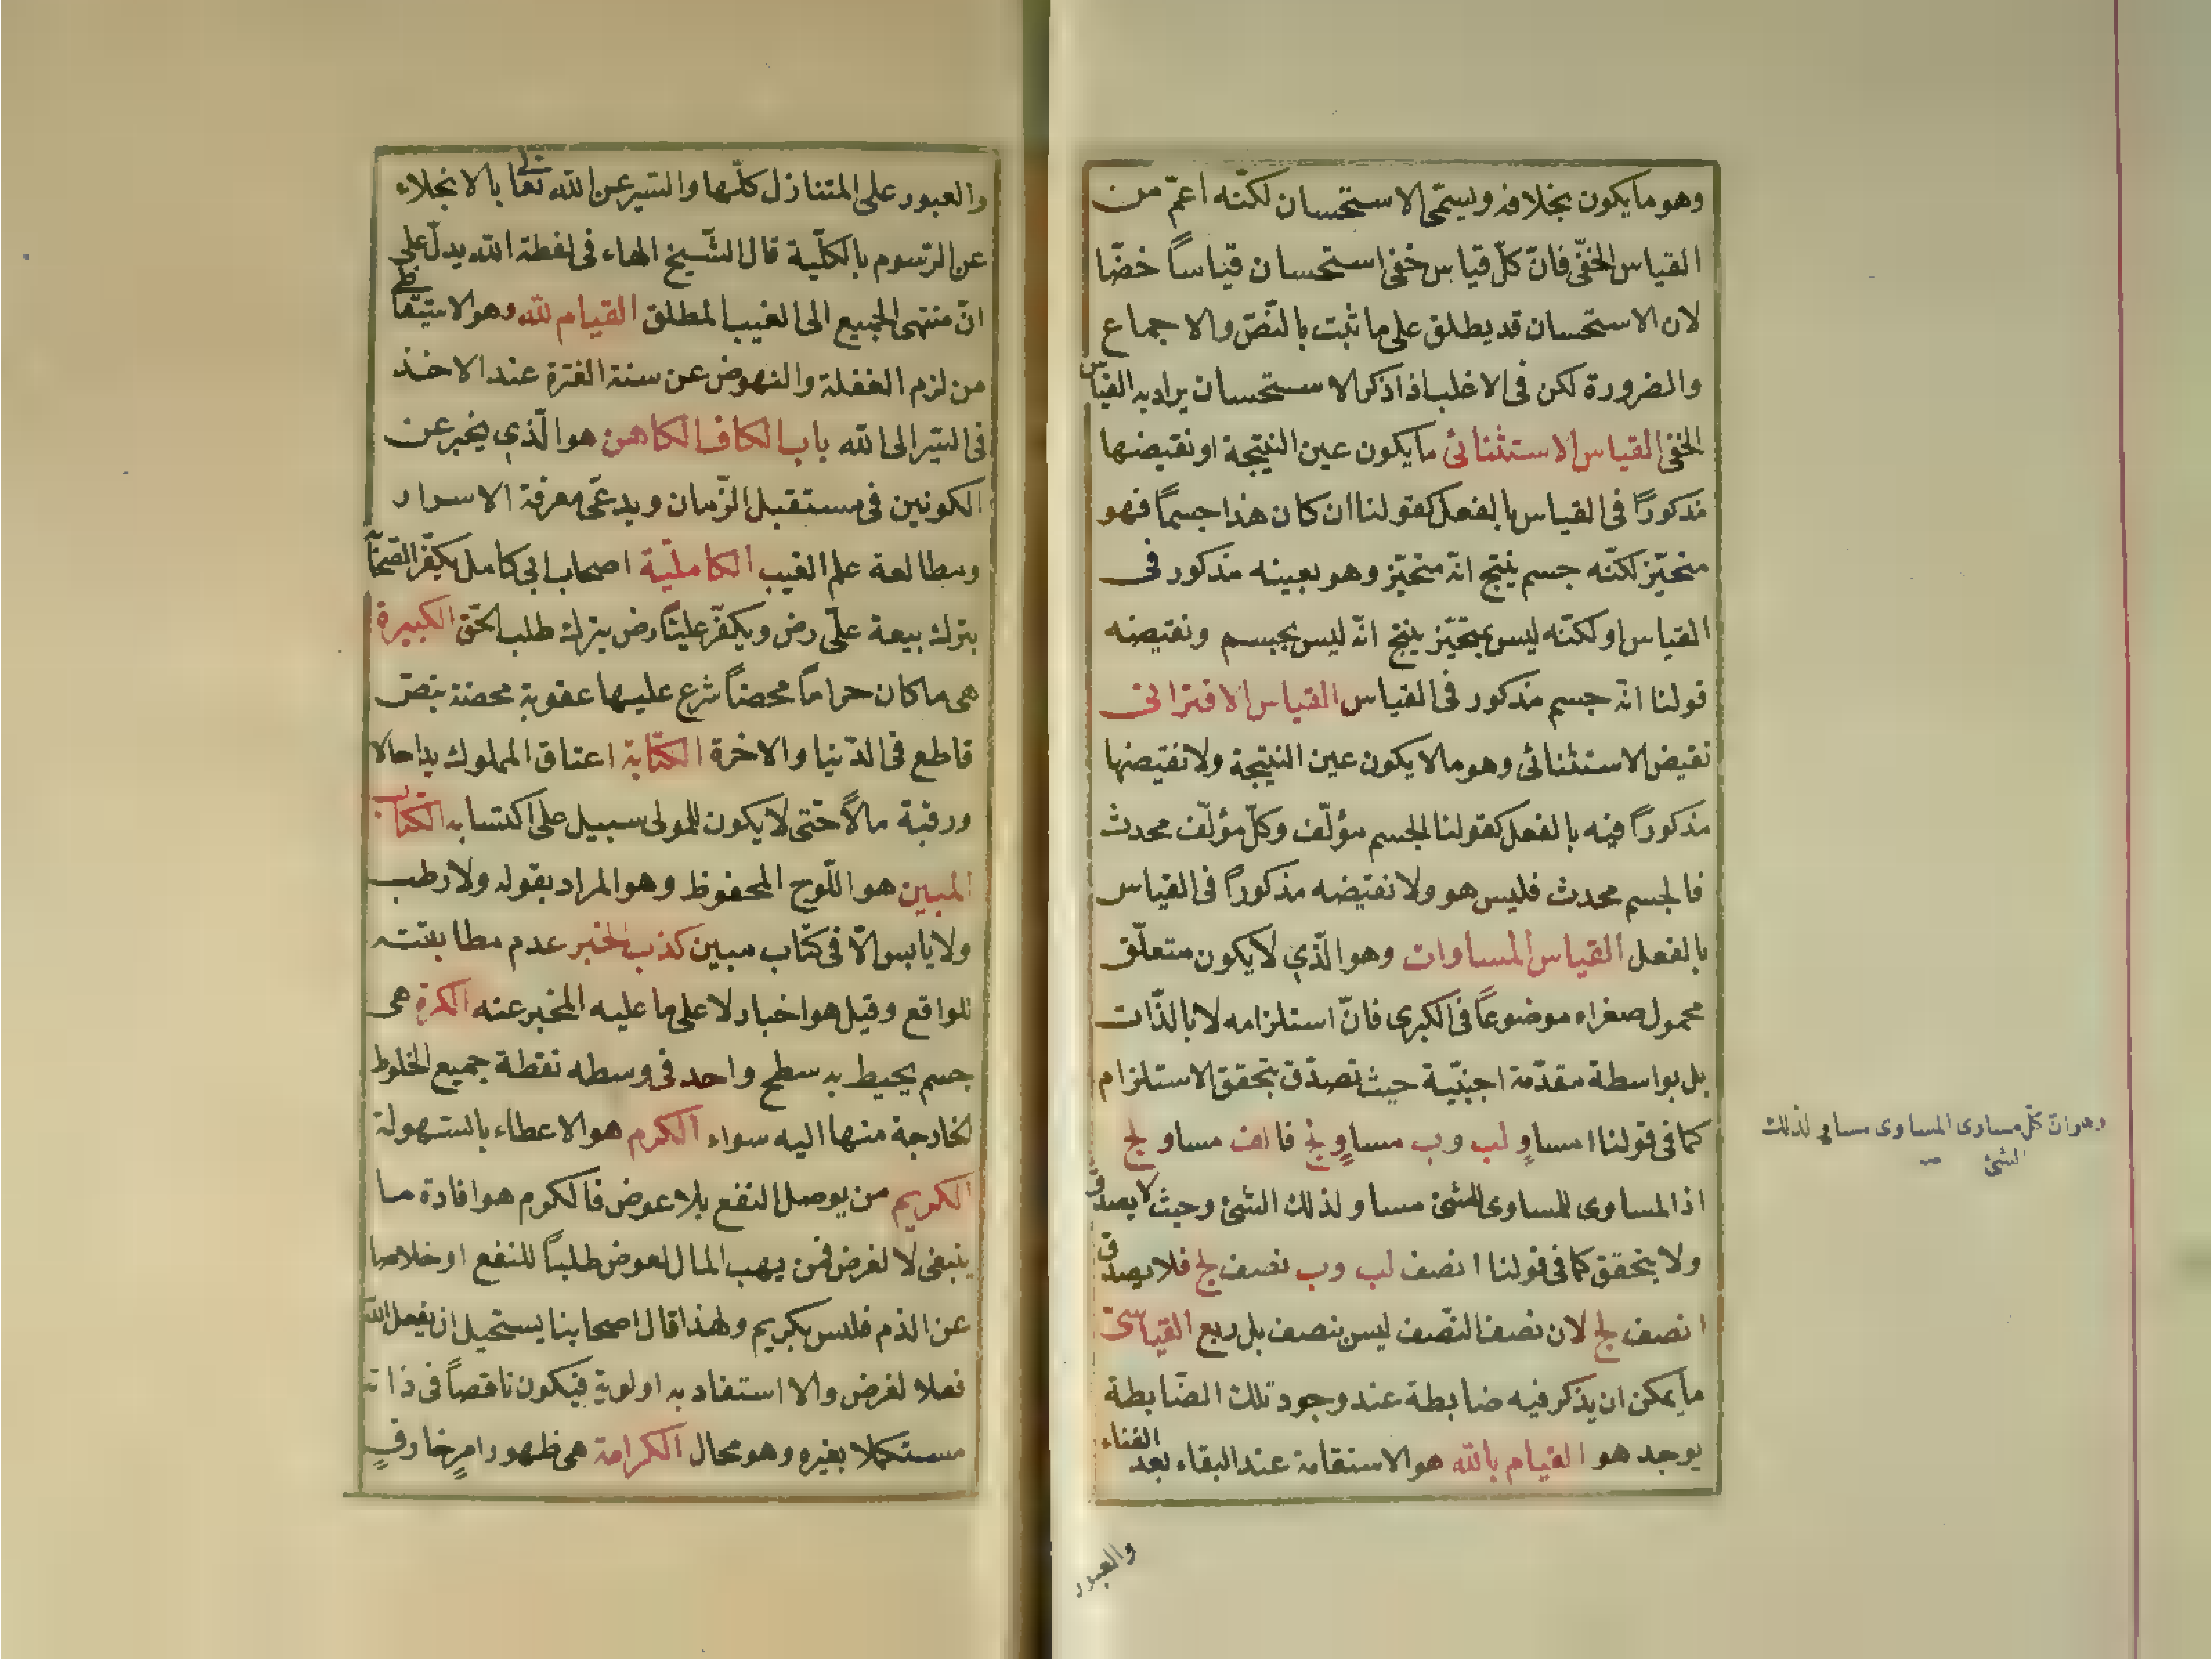 وهو ما يكون بخلافه ويسمّى الاستحسان لكنّه اعمّ من
القياس الخفىّ فانّ كلّ قياس خفى استحسان قياساً خفيّا
لان الاستحسان قد يطلق على ما ثبت بالنّصّ والاجماع
والضرورة لكن فى الاغلب اذا ذكر الاستحسان يراد به القياس
الخفى القياس الاستثنائى ما يكون عين النتيجة او نقيضها
مذكوراً فى القياس بالفعل كقولنا ان كان هذا جسماً فهو
متحيّز لكنّه جسم ينتج انّه متحيّز وهو بعينه مذكور فى
القياس او لكنّه ليس بمتحيّز ينتج انّه ليس بجسم ونقيضه
قولنا انّه جسم مذكور فى القياس القياس الاقترانى
نقيض الاستثنائى وهو ما لا يكون عين النتيجة ولا نقيضها
مذكوراً فيه بالفعل كقولنا الجسم مؤلّف وكلّ مؤلّف محدث
فالجسم محدث فليس هو ولا نقيضه مذكوراً فى القياس
بالفعل القياس المساوات وهو الّذي لا يكون متعلّق
محمول صغراه موضوعاً فى الكبرى فانّ استلزامه لا بالذّات
بل بواسطة مقدّمة اجنبيّة حيث تصدّق بتحقق الاستلزام
كما فى قولنا ا مساوٍ لب وب مساوٍ لج فالف مساو لج
اذ المساوى للمساوى للشئ مساو لذلك الشئ وحيث لا يصدق
ولا يتحقق كما فى قولنا ا نصف لب وب نصف لج فلا يصدق
ا نصف لج لان نصف النّصف ليس بنصف بل ربع القياسى
ما يمكن ان يذكر فيه ضابطة عند وجود تلك الضّابطة
يوجد هو القيام بالله هو الاستقامة عند البقاء بعد الفناء
والعبور
وهو ان كلّ مساوى المساوى مساو لذلك
الشئ
والعبور على المتنازل كلّها والسّير عن الله تعا بالانخلاء
عن الرّسوم بالكلّية قال الشّيخ الهاء فى لفظة الله يدلّ على
انّ منتهى الجميع الى الغيب المطلق القيام لله وهو الاستيقاظ
من لزم الغفلة والنهوض عن سنة الفترة عند الاخذ
فى السّير الى الله باب الكاف الكاهن هو الّذي يخبر عن
الكونين فى مستقبل الزّمان ويدعّى معرفة الاسرار
ومطالعة علم الغيب الكامليّة اصحاب ابى كامل يكفّر الصّحابة
بترك بيعة علّى رض ويكفّر عليّاً رض بترك طلب الحّق الكبيرة
هى ما كان حراماً محضاً شرع عليها عقوبة محضة بنصّ
قاطع فى الدّنيا والاخرة الكتابة اعتاق المملوك يدا حالا
ورقبة مالاً حتّى لا يكون للمولى سبيل على اكتسابه الكتاب
المبين هو اللّوح المحفوظ وهو المراد بقوله ولا رطب
ولا يابس الّا فى كتاب مبين كذب الخبر عدم مطابقته
للواقع وقيل هو اخبار لا على ما عليه المخبر عنه الكرة هى
جسم يحيط به سطح واحد فى وسطه نقطة جميع الخطوط
لخارجة منها اليه سواء الكرم هو الاعطاء بالسّهولة
الكريم من يوصل النفع بلا عوض فالكرم هو افادة ما
ينبغى لا لغرض فمن يهب المال لعوض طلباً للنفع او خلاصا
عن الذم فليس بكريم ولهذا قال اصحابنا يستحيل ان يفعل الله
فعلا لغرض والا استفاد به اولوية فيكون ناقصاً فى ذاته
مستكملا بغيره وهو محال الكرامة هى ظهور امرٍ خارقٍ